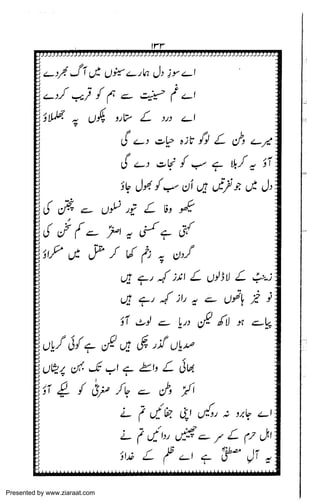 ۱۳۳
اے سوزِ دل ہمارے سینوں میں آگ بھر دے
اے غمِ حسینیت سے ہم کو قریب کر دے
اے درد کے ستارو پلکوں پہ جھلملاؤ
میرے وطن کے لوگو تازہ حیات دے گی
آؤ یہ کربلا ہے سب کو نجات دے گی
دل میں جو نفرتیں ہیں اُن کو سب بھول جاؤ
سیکھو وفا کے تیور نسلوں سے پنجتن کی
کہتی ہے کمسنی یہ اصغرؑ سے کم سُخن کی
گردن پہ زخم کھا کر مقتل میں مسکراؤ
زینبؑ کے لاڈلوں کے انداز کہہ رہے ہیں
نو خیز ہاتھوں سے یہ راز کہہ رہے ہیں
پیاسے ہو لاکھ لیکن دریا سے لوٹ آؤ
صدیاں گذر چکی ہیں لیکن ہے کوئی گریاں
بھائی کے واسطے ہے اب تک بہن پریشاں
اکبرؑ وطن سے جا کر صغریٰؑ کو لیکے آؤ
اے جابرو نہ روکیں اپنی جفائیں تم نے
اہلِ حرم کے سر سے چھینیں ردائیں تم نے
یہ آلِ مصطفیٰؐ ہے اے ظلم کے خداؤ
Presented by www.ziaraat.com